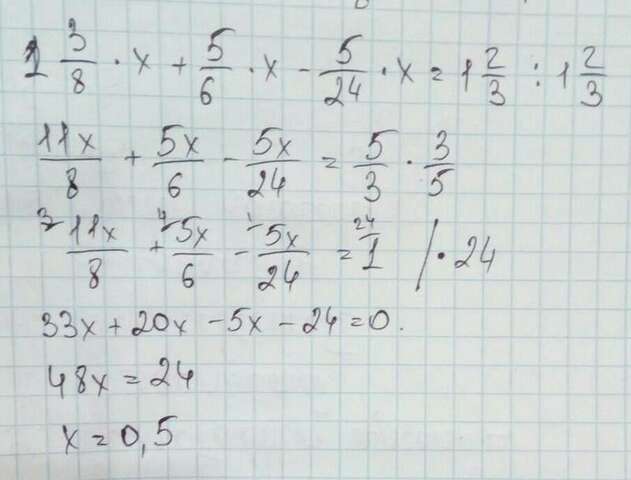 1 3/8 · x + 5/6 · x - 5/24 · x = 1 2/3 : 1 2/3
11x/8 + 5x/6 - 5x/24 = 5/3 · 3/5
3 11x/8 + 4 5x/6 - 1 5x/24 = 24 1 / · 24
33x + 20x - 5x - 24 = 0.
48x = 24
x = 0,5